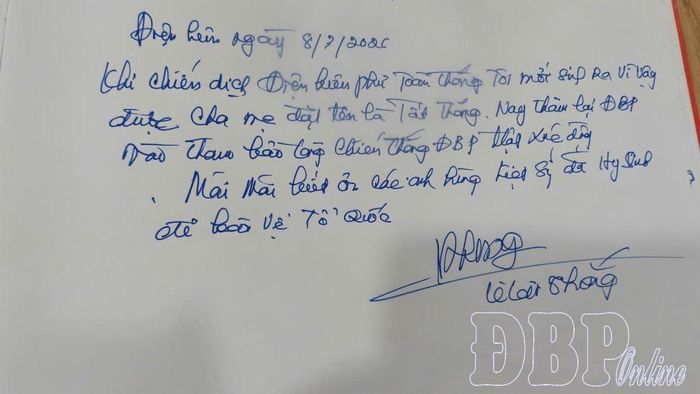 Điện biên ngày 8/7/2026
Khi chiến dịch Điện biên phủ Toàn thắng Tôi mới sinh Ra Vì vậy
được cha mẹ đặt tên là Tất Thắng. Nay thăm lại ĐBP
vào tham bảo tàng chiến thắng ĐBP thật xúc động
Mãi Mãi biết ơn các anh hùng Liệt Sỹ đã Hy Sinh
để bảo vệ Tổ Quốc
Lê Tất Thắng
ĐBP Online